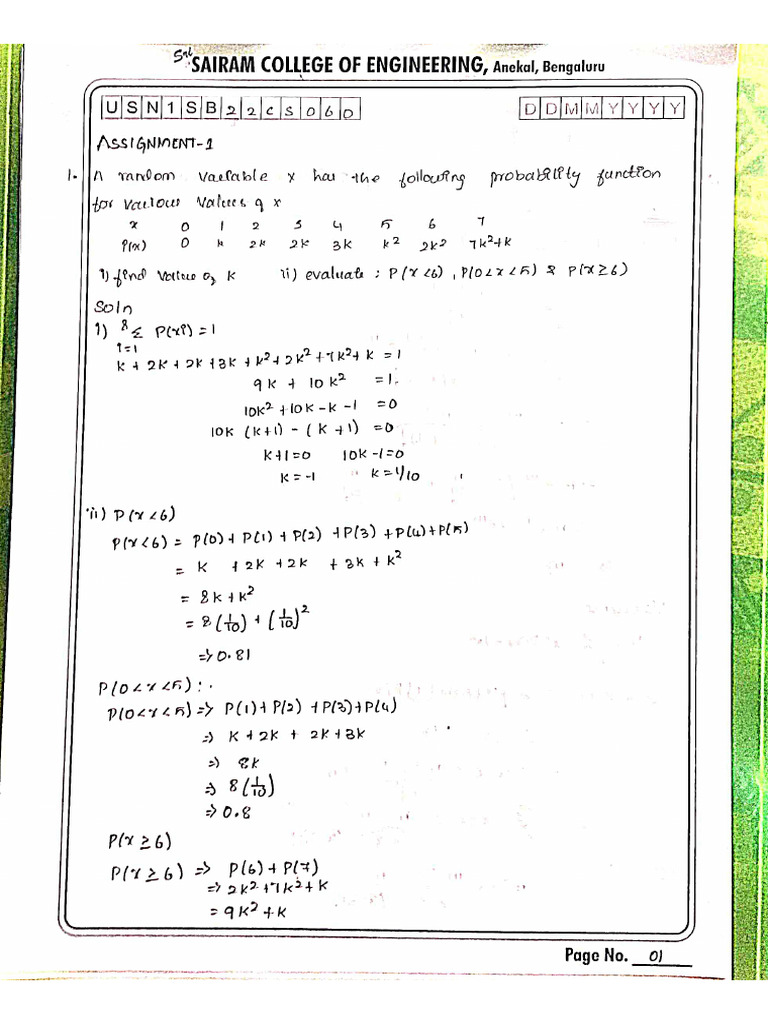 Sri SAIRAM COLLEGE OF ENGINEERING, Anekal, Bengaluru
USN1SB22CS060 DDMMYYYY
ASSIGNMENT-1
1. A random variable x has the following probability function
for various values of x
x 0 1 2 3 4 5 6 7
P(x) 0 k 2k 2k 3k k² 2k² 7k²+k
i) find value of k ii) evaluate : P(x<6), P(0<x<5) & P(x≥6)
Soln
i) 8 Σ P(xi) = 1
i=1
k + 2k + 2k + 3k + k² + 2k² + 7k² + k = 1
9k + 10k² = 1
10k² + 10k - k - 1 = 0
10k (k+1) - (k+1) = 0
k+1=0 10k-1=0
k=-1 k=1/10
ii) P(x<6)
P(x<6) = P(0) + P(1) + P(2) + P(3) + P(4) + P(5)
= k + 2k + 2k + 3k + k²
= 8k + k²
= 8(1/10) + (1/10)²
=> 0.81
P(0<x<5):.
P(0<x<5) => P(1) + P(2) + P(3) + P(4)
=> k + 2k + 2k + 3k
=> 8k
=> 8(1/10)
=> 0.8
P(x≥6)
P(x≥6) => P(6) + P(7)
=> 2k² + 7k² + k
= 9k² + k
Page No. 01